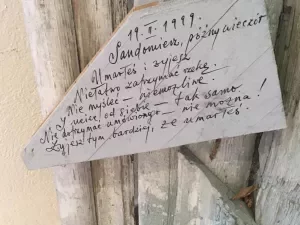 19.II.1999.
Sandomierz, późny wieczór
Umarłeś i żyjesz
Niełatwo zatrzymać rzekę.
Nie myśleć – niemożliwe.
uciec od siebie – tak samo.
Nie dotrzymać umówionego – nie można!
Żyjesz tym bardziej, że umarłeś.